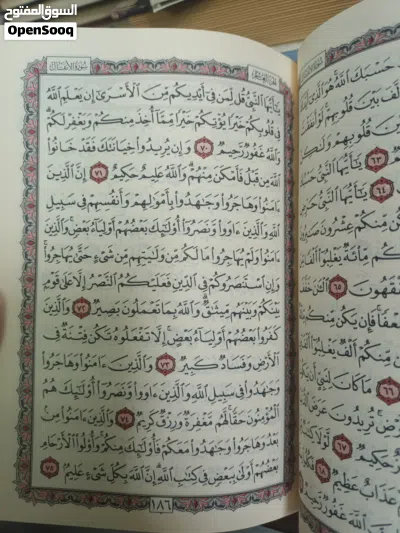 السوق المفتوح
OpenSooq
حَسْبَكَ ٱللَّهُ هُوَ ٱلَّذِىٓ أَيَّدَ
لَّفَ بَيْنَ قُلُوبِهِمْ لَوْ أَنفَقْتَ
قُلُوبِهِمْ وَلَٰكِ
٦٣ يَٰٓأَيُّهَا ٱلنَّبِىُّ حَسْ
٦٤ يَٰٓأَيُّهَا ٱلنَّبِىُّ
ن مِّنكُمْ عِشْرُونَ صَٰبِرُو
مِّنكُم مِّا۟ئَةٌ يَغْلِبُوٓا۟ أَلْفًا مِّ
فْقَهُونَ ٦٥ ٱلْـَٰٔنَ خَفَّفَ
عْفًا فَإِن يَكُن مِّنكُ
مِّنكُمْ أَلْفٌ يَغْلِبُوٓا۟ أَلْ
٦٦ مَا كَانَ لِنَبِىٍّ أَن يَكُ
تُرِيدُونَ عَرَضَ ٱلدُّ
حَكِيمٌ ٦٧ لَّوْلَا كِتَٰ
عَذَابٌ عَظِيمٌ ٦٨
ٱللَّهَ غَفُورٌ رَّحِيمٌ
سُورَةُ الأَنفَال
الجزء العاشر
يَٰٓأَيُّهَا ٱلنَّبِىُّ قُل لِّمَن فِىٓ أَيْدِيكُم مِّنَ ٱلْأَسْرَىٰٓ إِن يَعْلَمِ ٱللَّهُ
فِى قُلُوبِكُمْ خَيْرًا يُؤْتِكُمْ خَيْرًا مِّمَّآ أُخِذَ مِنكُمْ وَيَغْفِرْ لَكُمْ
وَٱللَّهُ غَفُورٌ رَّحِيمٌ ٧٠ وَإِن يُرِيدُوا۟ خِيَانَتَكَ فَقَدْ خَانُوا۟
ٱللَّهَ مِن قَبْلُ فَأَمْكَنَ مِنْهُمْ وَٱللَّهُ عَلِيمٌ حَكِيمٌ ٧١ إِنَّ ٱلَّذِينَ
ءَامَنُوا۟ وَهَاجَرُوا۟ وَجَٰهَدُوا۟ بِأَمْوَٰلِهِمْ وَأَنفُسِهِمْ فِى سَبِيلِ
ٱللَّهِ وَٱلَّذِينَ ءَاوَوا۟ وَّنَصَرُوٓا۟ أُو۟لَٰٓئِكَ بَعْضُهُمْ أَوْلِيَآءُ بَعْضٍ وَٱلَّذِينَ
ءَامَنُوا۟ وَلَمْ يُهَاجِرُوا۟ مَا لَكُم مِّن وَلَٰيَتِهِم مِّن شَىْءٍ حَتَّىٰ يُهَاجِرُوا۟
وَإِنِ ٱسْتَنصَرُوكُمْ فِى ٱلدِّينِ فَعَلَيْكُمُ ٱلنَّصْرُ إِلَّا عَلَىٰ قَوْمٍۭ
بَيْنَكُمْ وَبَيْنَهُم مِّيثَٰقٌ وَٱللَّهُ بِمَا تَعْمَلُونَ بَصِيرٌ ٧٢ وَٱلَّذِينَ
كَفَرُوا۟ بَعْضُهُمْ أَوْلِيَآءُ بَعْضٍ إِلَّا تَفْعَلُوهُ تَكُن فِتْنَةٌ فِى
ٱلْأَرْضِ وَفَسَادٌ كَبِيرٌ ٧٣ وَٱلَّذِينَ ءَامَنُوا۟ وَهَاجَرُوا۟
وَجَٰهَدُوا۟ فِى سَبِيلِ ٱللَّهِ وَٱلَّذِينَ ءَاوَوا۟ وَّنَصَرُوٓا۟ أُو۟لَٰٓئِكَ هُمُ
ٱلْمُؤْمِنُونَ حَقًّا لَّهُم مَّغْفِرَةٌ وَرِزْقٌ كَرِيمٌ ٧٤ وَٱلَّذِينَ ءَامَنُوا۟ مِنۢ
بَعْدُ وَهَاجَرُوا۟ وَجَٰهَدُوا۟ مَعَكُمْ فَأُو۟لَٰٓئِكَ مِنكُمْ وَأُو۟لُوا۟ ٱلْأَرْحَامِ
بَعْضُهُمْ أَوْلَىٰ بِبَعْضٍ فِى كِتَٰبِ ٱللَّهِ إِنَّ ٱللَّهَ بِكُلِّ شَىْءٍ عَلِيمٌۢ ٧٥
١٨٦